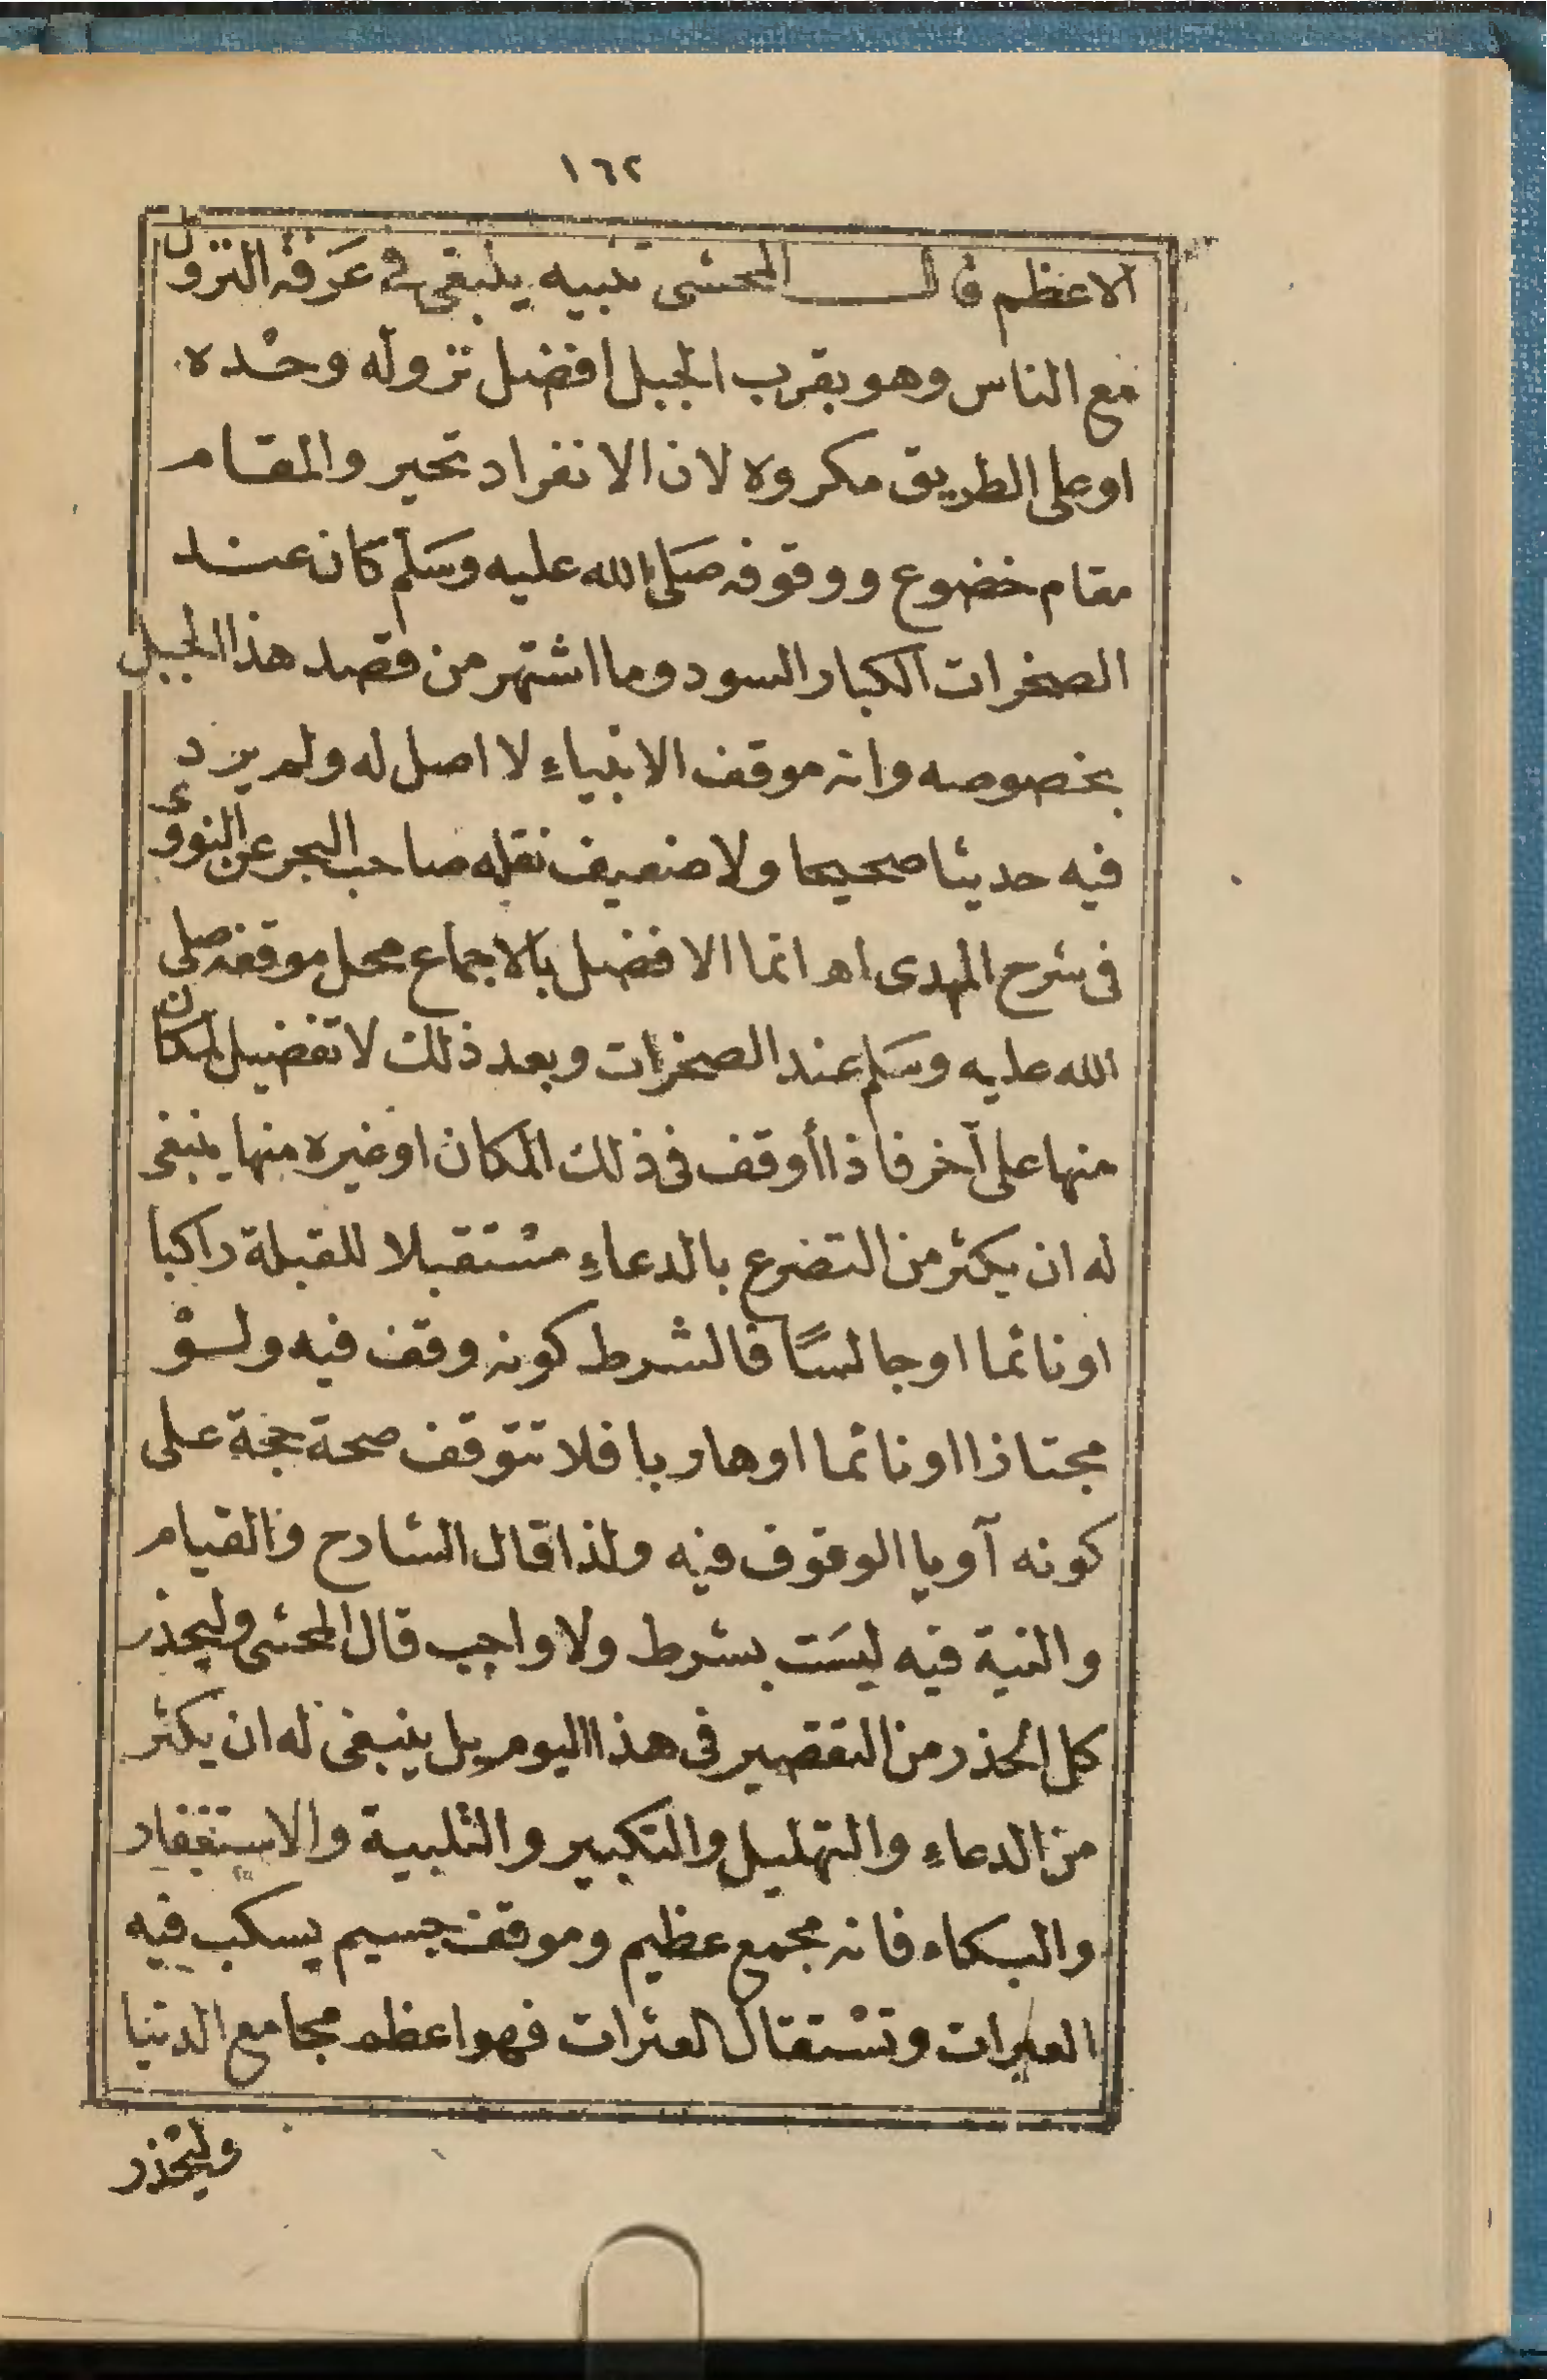 ١٦٢
الاعظم قال المحشى تنبيه ينبغى في عَرَفة النزول
مع الناس وهو بقرب الجبل افضل نزوله وحْده
او على الطريق مكروه لان الانفراد تحير والمقام
مقام خضوع ووقوفه صَلى الله عليه وسَلم كان عند
الصخرات الكبار السود وما اشتهر من قصد هذا الجبل
بخصوصه وانه موقف الانبياءِ لا اصل له ولم يرد
فيه حديثا صحيحا ولا ضعيف نقله صاحب البحر عن النووى
فى شرح المهدى اھ انما الافضل بالاجماع محل موقفه صلى
الله عليه وسَلم عند الصخرات وبعد ذلك لا تفضيل لمكان
منها على آخر فاذا أوقف فى ذلك المكان او غيره منها ينبغى
له ان يكثر من التضرع بالدعاءِ مسْتقبلا للقبلة راكبا
او نائما او جالسًا فالشرط كونه وقف فيه ولوْ
مجتازا او نائما او هاربا فلا تتوقف صحة حجة على
كونه آويا الوقوف فيه ولذا قال الشارح والقيام
والنية فيه ليسَت بشرط ولا واجب قال المحشى وليحذر
كل الحذر من التقصير فى هذا اليوم بل ينبغى له ان يكثر
من الدعاءِ والتهليل والتكبير والتلبية والاستغفار
والبكاء فانه مجمع عظيم وموقف جسيم يسكب فيه
العبرات وتسْتقال العثرات فهو اعظم مجامع الدنيا
وليْحذر